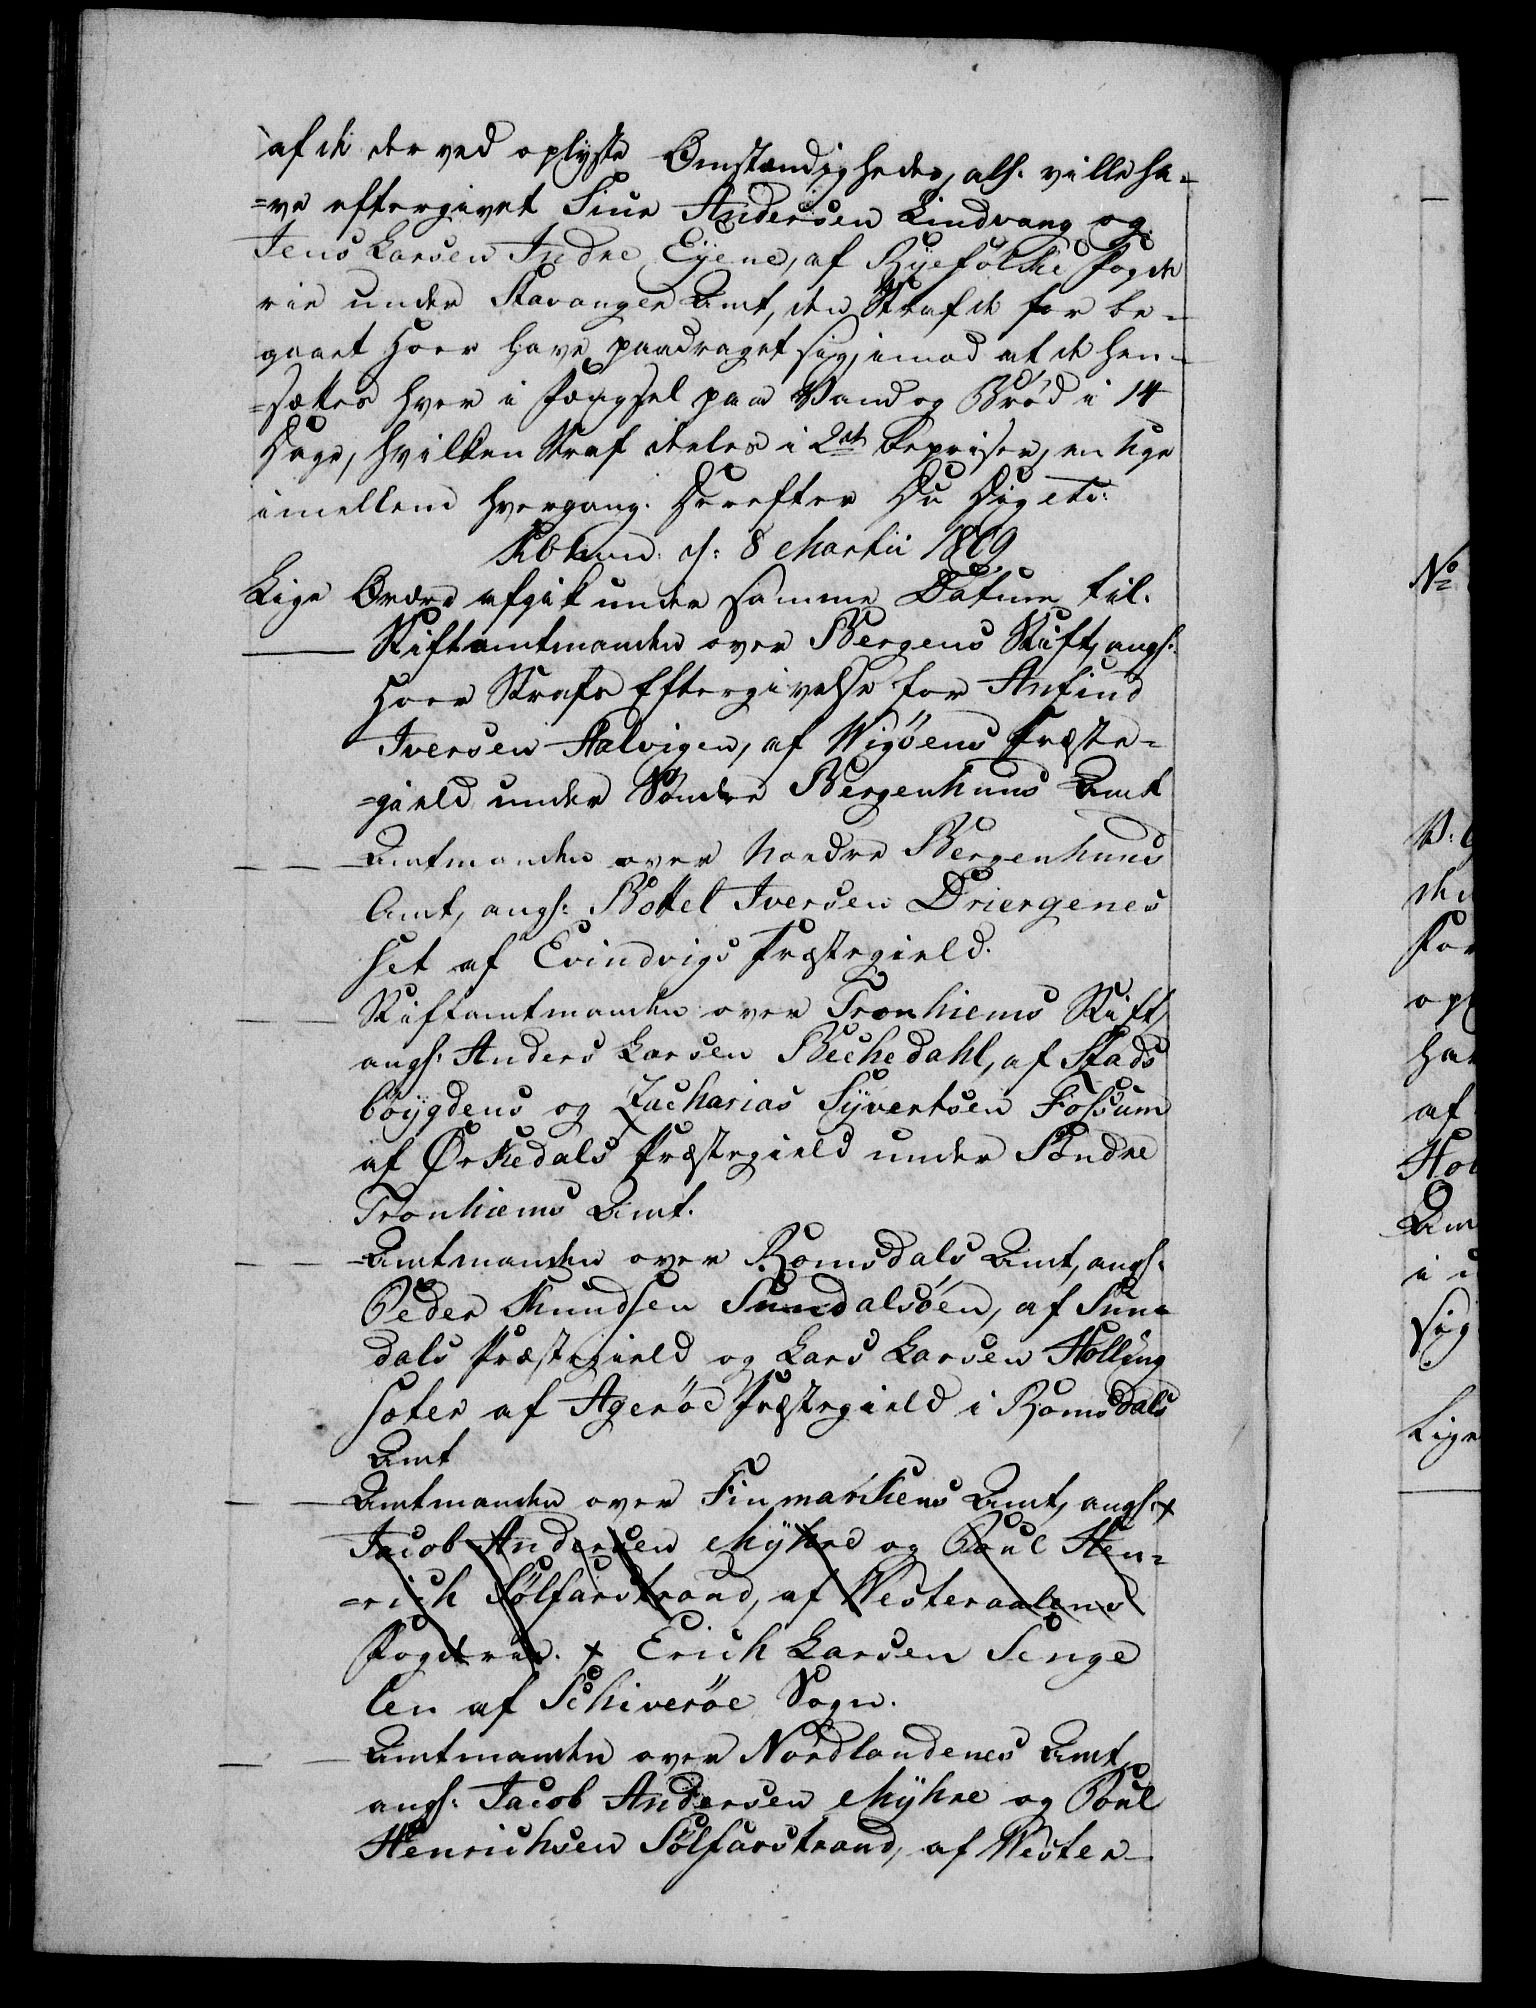 af de der ved oplyste Omstændigheder, all. ville ha-
=ve eftergivet Siur Andersen Lindvang og
Jens Larsen Indre Eÿene, af Rÿefolke Fogde
rie under Stavanger Amt, den Straf de for be-
gaaet Hoer have paadraget sig, imod at de hen-
=sættes hver i Fængsel paa Vand og Brød i 14
Dage, hvilken Straf deeles i 2de Repriser, en Uge
imellem hvergang. Derefter Du Dig etc:
Kbhavn. d: 8 Martii 1809
Lige Ordre afgik under samme Datum til.
Stiftamtmanden over Bergens Stift, angl:
Hoer Strafs Eftergivelse for Anfind
Iversen Aalvigen, af Wigöens Præste-
=gield under Søndre Bergenhuus Amt
Amtmanden over Nordre Bergenhuus
Amt, angl: Bottel Iversen Driergenes
set af Evindvigs Præstegield.
Stiftamtmanden over Tronhiems Stift,
angl: Anders Larsen Bechedahl, af Stads
böÿgdens og Zacharias Sÿvertsen Fossum
af Ørkedals Præstegield under Søndre
Tronhiems Amt.
Amtmanden over Romsdals Amt, angl:
Peder Knudsen Sundalsöen, af Sun=
dals Præstegield og Lars Larsen Holling
sæter af Ageröe Præstegield i Romsdals
Amt
Amtmanden over Finmarkens Amt, angl: +
Jacob Andersen Mÿhre og Poul Hen=
=rich Sölfarstrand, af Westeraalens
Fogderie. + Erich Larsen Senge
len af Schiveröe Sogn.
Amtmanden over Nordlandenes Amt
angl: Jacob Andersen Mÿhre og Poul
Henrichsen Sölfarstrand, af Wester-
No